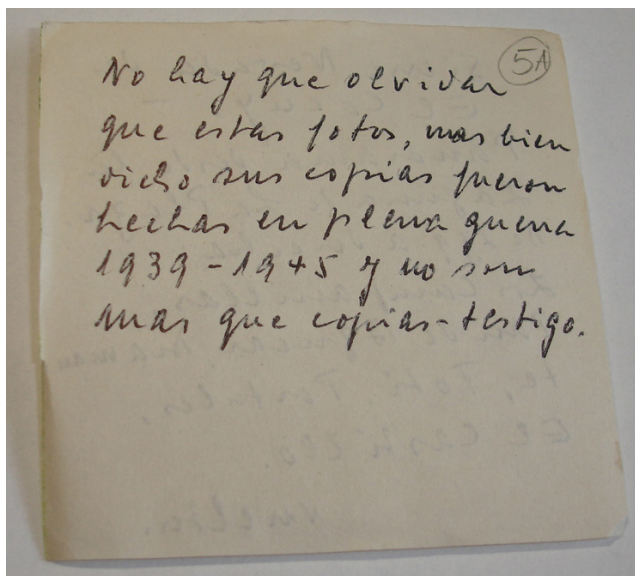 5A
No hay que olvidar
que estas fotos, mas bien
dicho sus copias fueron
hechas en plena guerra
1939-1945 y no son
mas que copias-testigo.